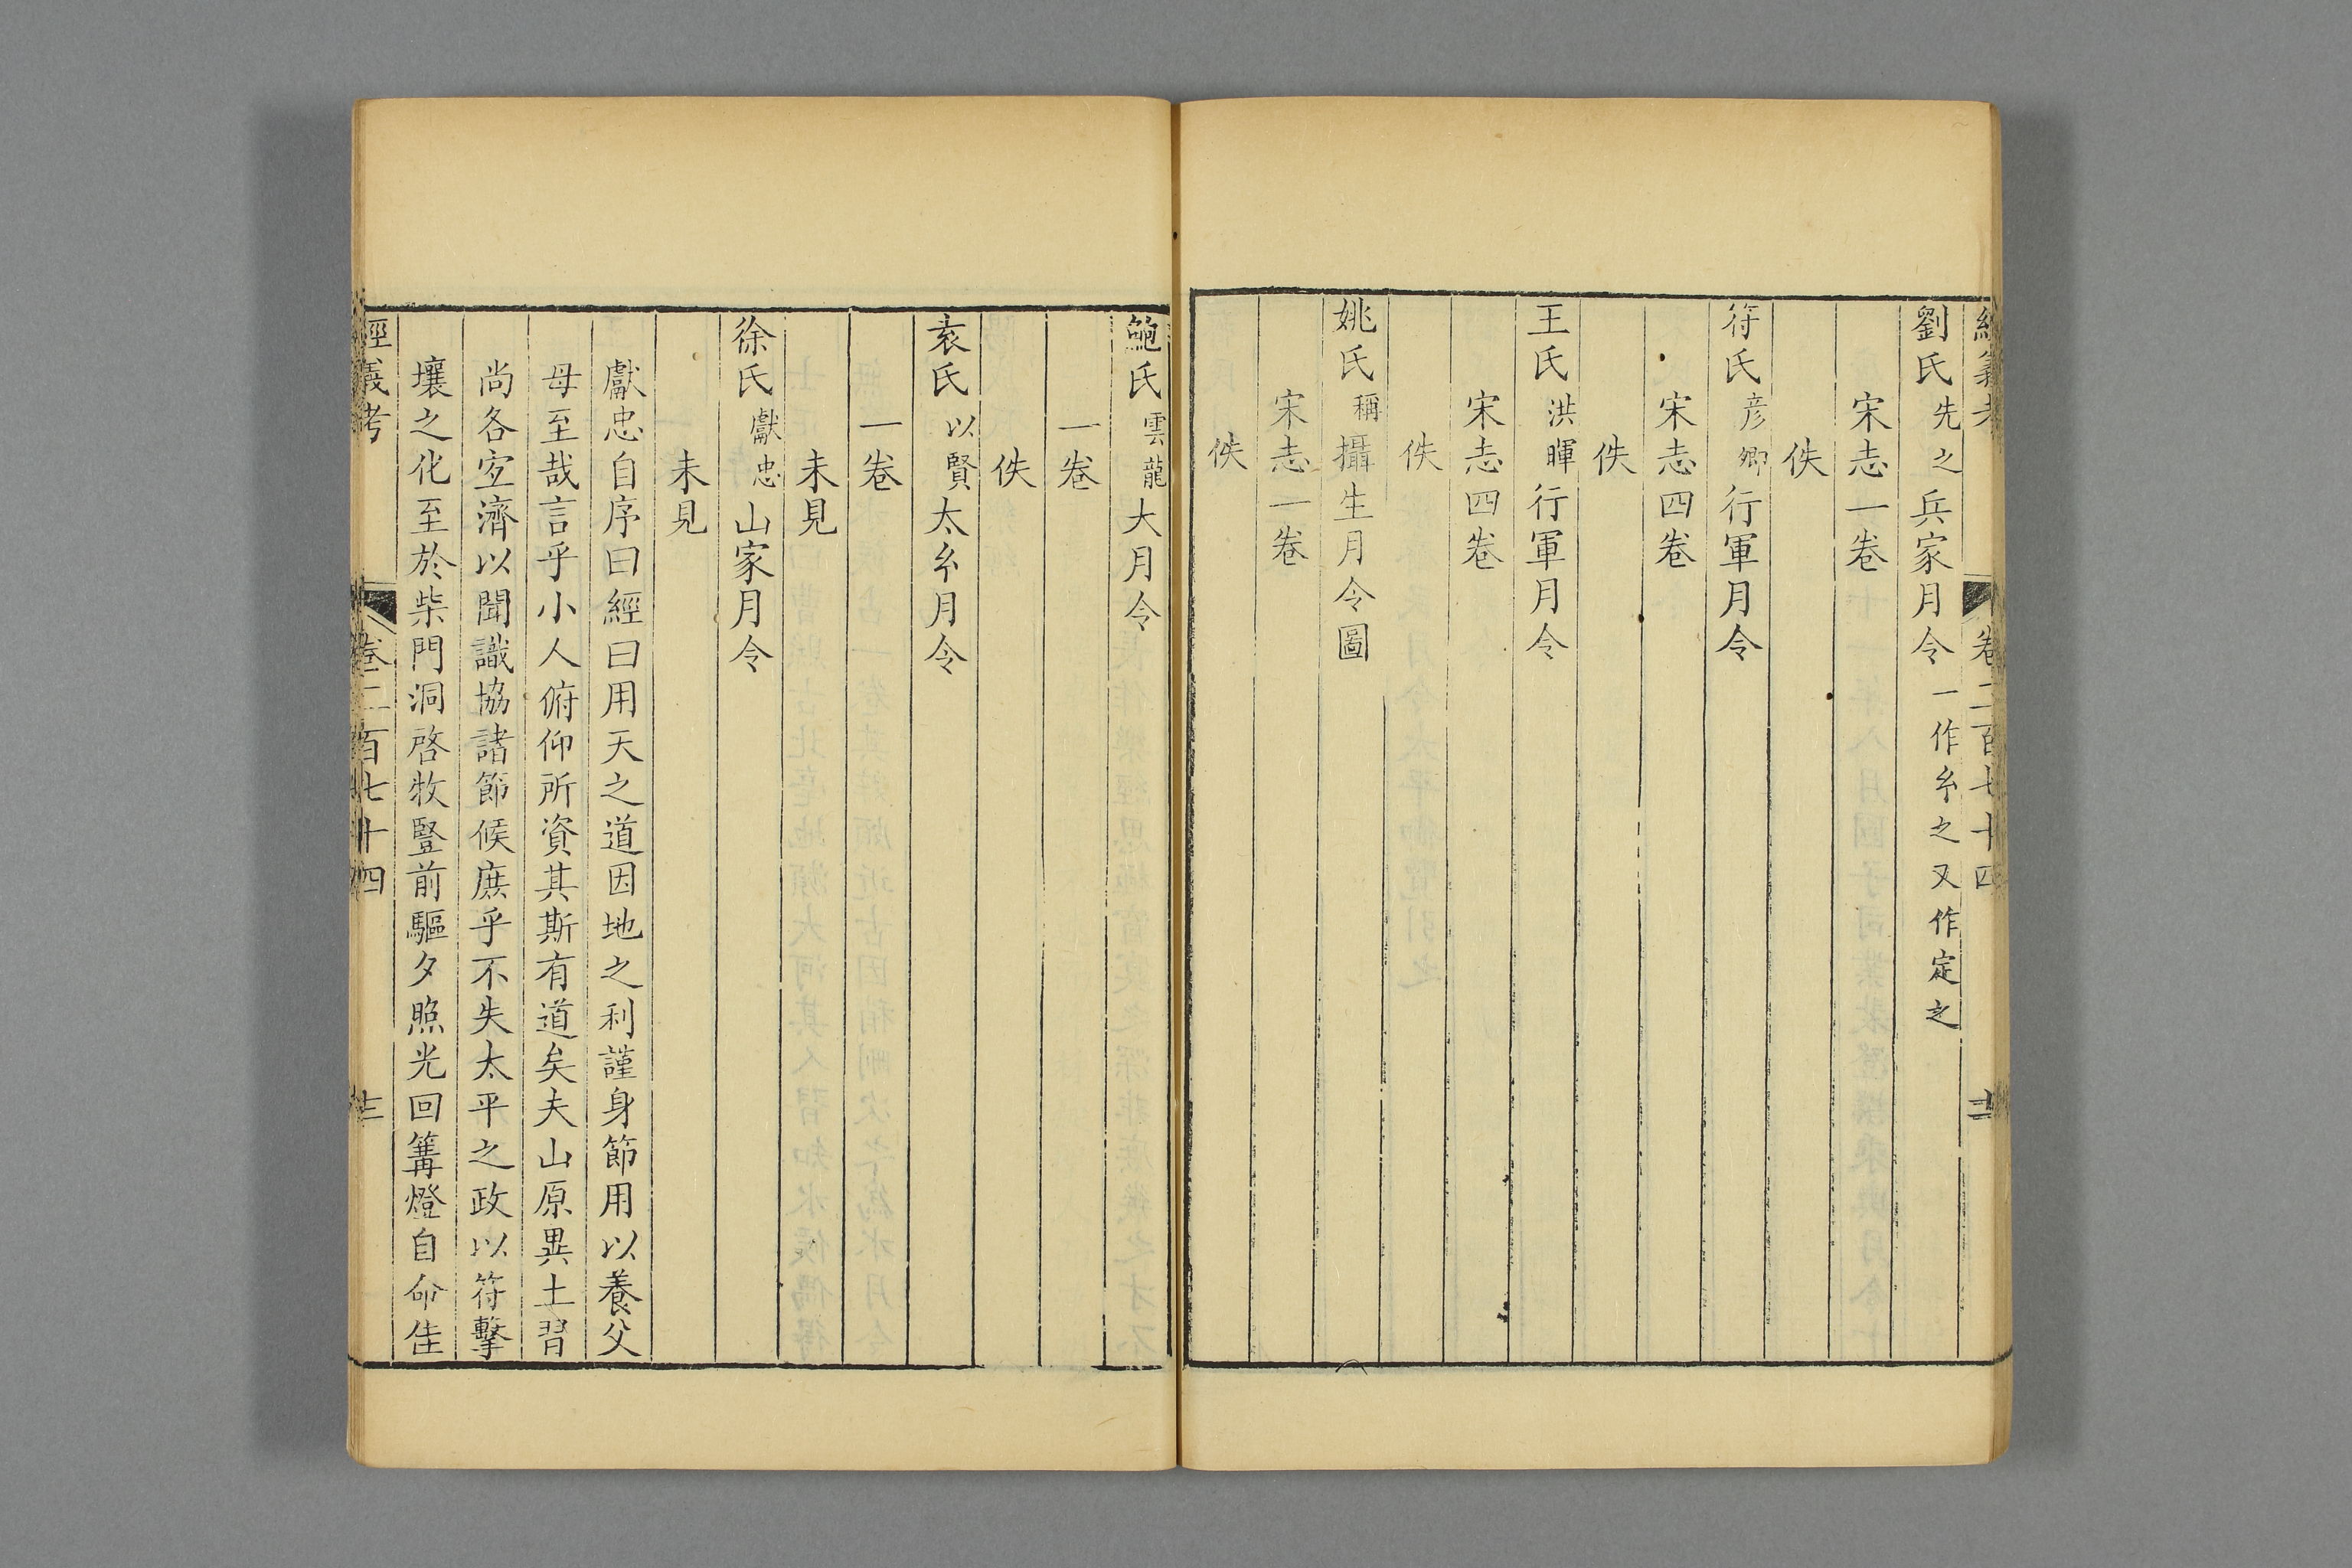 經義考 卷二百七十四 十二
劉氏先之兵家月令一作糸之又作定之
宋志一卷
佚
符氏彦卿行軍月令
宋志四卷
佚
王氏洪暉行軍月令
宋志四卷
佚
姚氏稱攝生月令圖
宋志一卷
佚
鮑氏雲龍大月令
一卷
佚
袁氏以賢太糸月令
一卷
未見
徐氏獻忠山家月令
未見
獻忠自序曰經曰用天之道因地之利謹身節用以養父
母至哉言乎小人俯仰所資其斯有道矣夫山原異土習
尚各宐濟以聞識協諸節候庶乎不失太平之政以符擊
壤之化至於柴門洞啓牧豎前驅夕照光回篝燈自命佳
經義考 卷二百七十四 十三